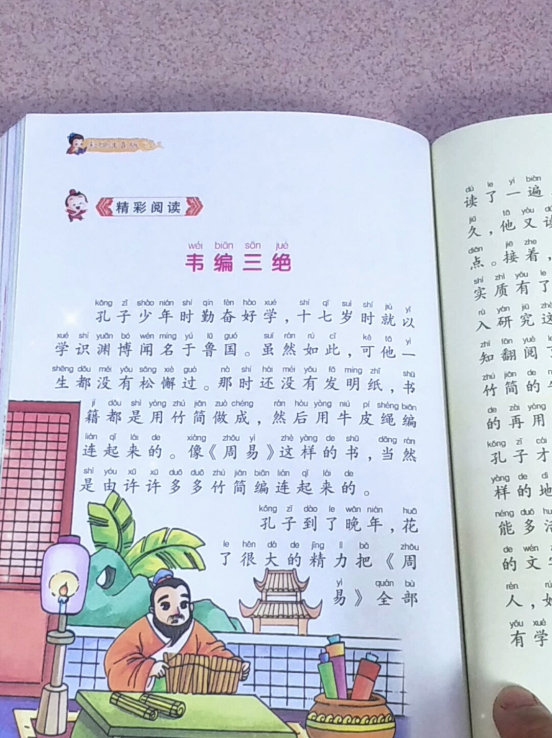 精彩阅读
wéi biān sān jué
韦编三绝
kǒng zǐ shào nián shí qín fèn hào xué shí qī suì shí jiù yǐ
孔子少年时勤奋好学，十七岁时就以
xué shí yuān bó wén míng yú lǔ guó suī rán rú cǐ kě tā yì
学识渊博闻名于鲁国。虽然如此，可他一
shēng dōu méi yǒu sōng xiè guò nà shí hái méi yǒu fā míng zhǐ shū
生都没有松懈过。那时还没有发明纸，书
jí dōu shì yòng zhú jiǎn zuò chéng rán hòu yòng niú pí shéng biān
籍都是用竹简做成，然后用牛皮绳编
lián qǐ lái de xiàng zhōu yì zhè yàng de shū dāng rán
连起来的。像《周易》这样的书，当然
shì yóu xǔ xǔ duō duō zhú jiǎn biān lián qǐ lái de
是由许许多多竹简编连起来的。
kǒng zǐ dào le wǎn nián huā
孔子到了晚年，花
le hěn dà de jīng lì bǎ zhōu
了很大的精力把《周
yì quán bù
易》全部
dú le yí biàn
读了一遍
久，他又读
点。接着，
shí zhì yǒu le
实质有了
rù yán jiū zhè
入研究这
zhī fān yuè le
知翻阅了
zhú jiǎn de niú
竹简的牛
de zài yòng
的再用
kǒng zǐ cái
孔子才
yàng de dì
样的地
néng duō huó
能多活
de wén
的文字
人，如
yǒu xué
有学